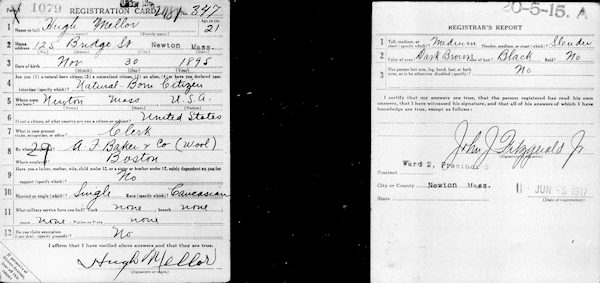 1079 REGISTRATION CARD 347
1 Name in full Hugh Mellor 21
(Given name) (Family name) Age, in yrs.
2 Home address 125 Bridge St Newton Mass.
(No.) (Street) (City) (State)
3 Date of birth Nov 30 1895
(Month) (Day) (Year)
4 Are you (1) a natural-born citizen, (2) a naturalized citizen, (3) an alien, (4) or have you declared your
intention (specify which)? Natural Born Citizen
5 Where were you born? Newton Mass U.S.A.
(Town) (State) (Nation)
6 If not a citizen, of what country are you a citizen or subject? United States
7 What is your present trade, occupation, or office? Clerk
8 By whom employed? A. F. Baker & Co (Wool)
29 Where employed? Boston
9 Have you a father, mother, wife, child under 12, or a sister or brother under 12, solely dependent on you for
support (specify which)? No
10 Married or single (which)? Single Race (specify which)? Caucasian
11 What military service have you had? Rank none branch none
years none Nation or State none
12 Do you claim exemption from draft (specify grounds)? No
I affirm that I have verified above answers and that they are true.
Hugh Mellor
(Signature or mark)
20-5-15. A
REGISTRAR'S REPORT
1 Tall, medium, or short (specify which)? Medium Slender, medium, or stout (which)? Slender
2 Color of eyes? Dark Brown Color of hair? Black Bald? No
3 Has person lost arm, leg, hand, foot, or both
eyes, or is he otherwise disabled (specify)? No
I certify that my answers are true, that the person registered has read his own
answers, that I have witnessed his signature, and that all of his answers of which I have
knowledge are true, except as follows:
John J Fitzgerald Jr
(Signature of registrar)
Precinct Ward 2, Precinct
City or County Newton Mass.
State JUN -5 1917
(Date of registration)